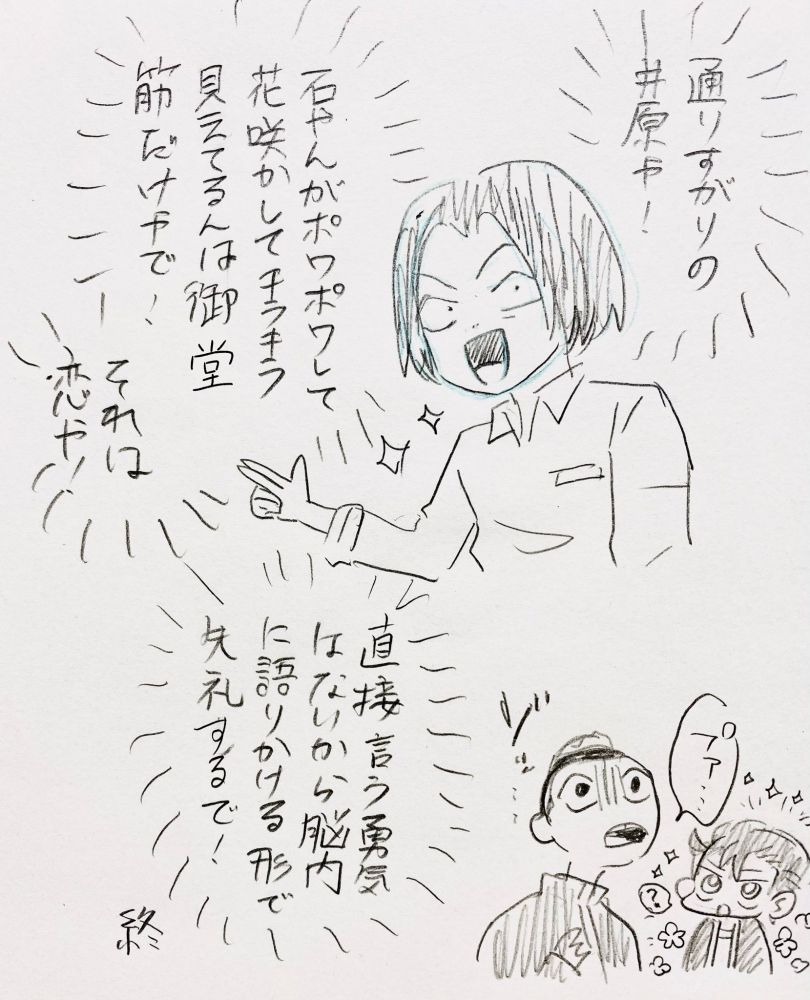 通りすがりの
井原や！
石やんがポワポワして
花咲かしてキラキラ
見えてるんは御堂
筋だけやで！
それは
恋や！
直接言う勇気
はないから脳内
に語りかける形で
失礼するで！
ゾッ…
プァ…
?
終